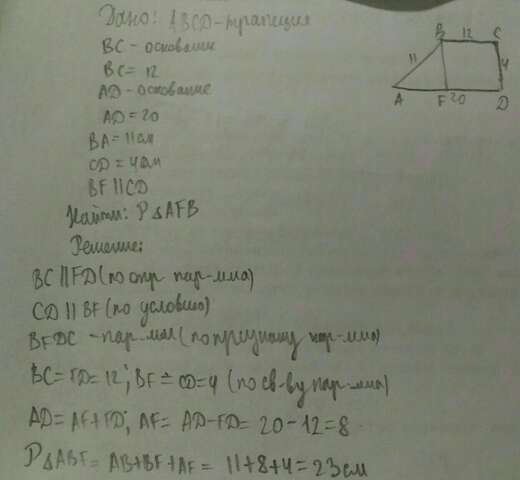 Дано: ABCD-трапеция
BC - основание
BC = 12
AD - основание
AD = 20
BA = 11см
CD = 4см
BF || CD
Найти: P△AFB
Решение:
BC || FD (по опр пар-мма)
CD || BF (по условию)
BFDC - пар-мм (по признаку пар-мма)
BC = FD = 12; BF = CD = 4 (по св-ву пар-мма)
AD = AF + FD; AF = AD - FD = 20 - 12 = 8
P△ABF = AB + BF + AF = 11 + 8 + 4 = 23 см
B 12 C
11 4
A F 20 D